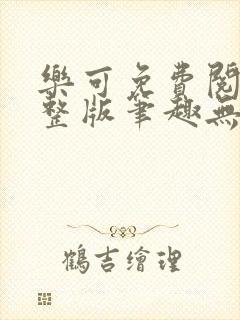 樂可免費閱
整版筆趣無
鶴吉繪理